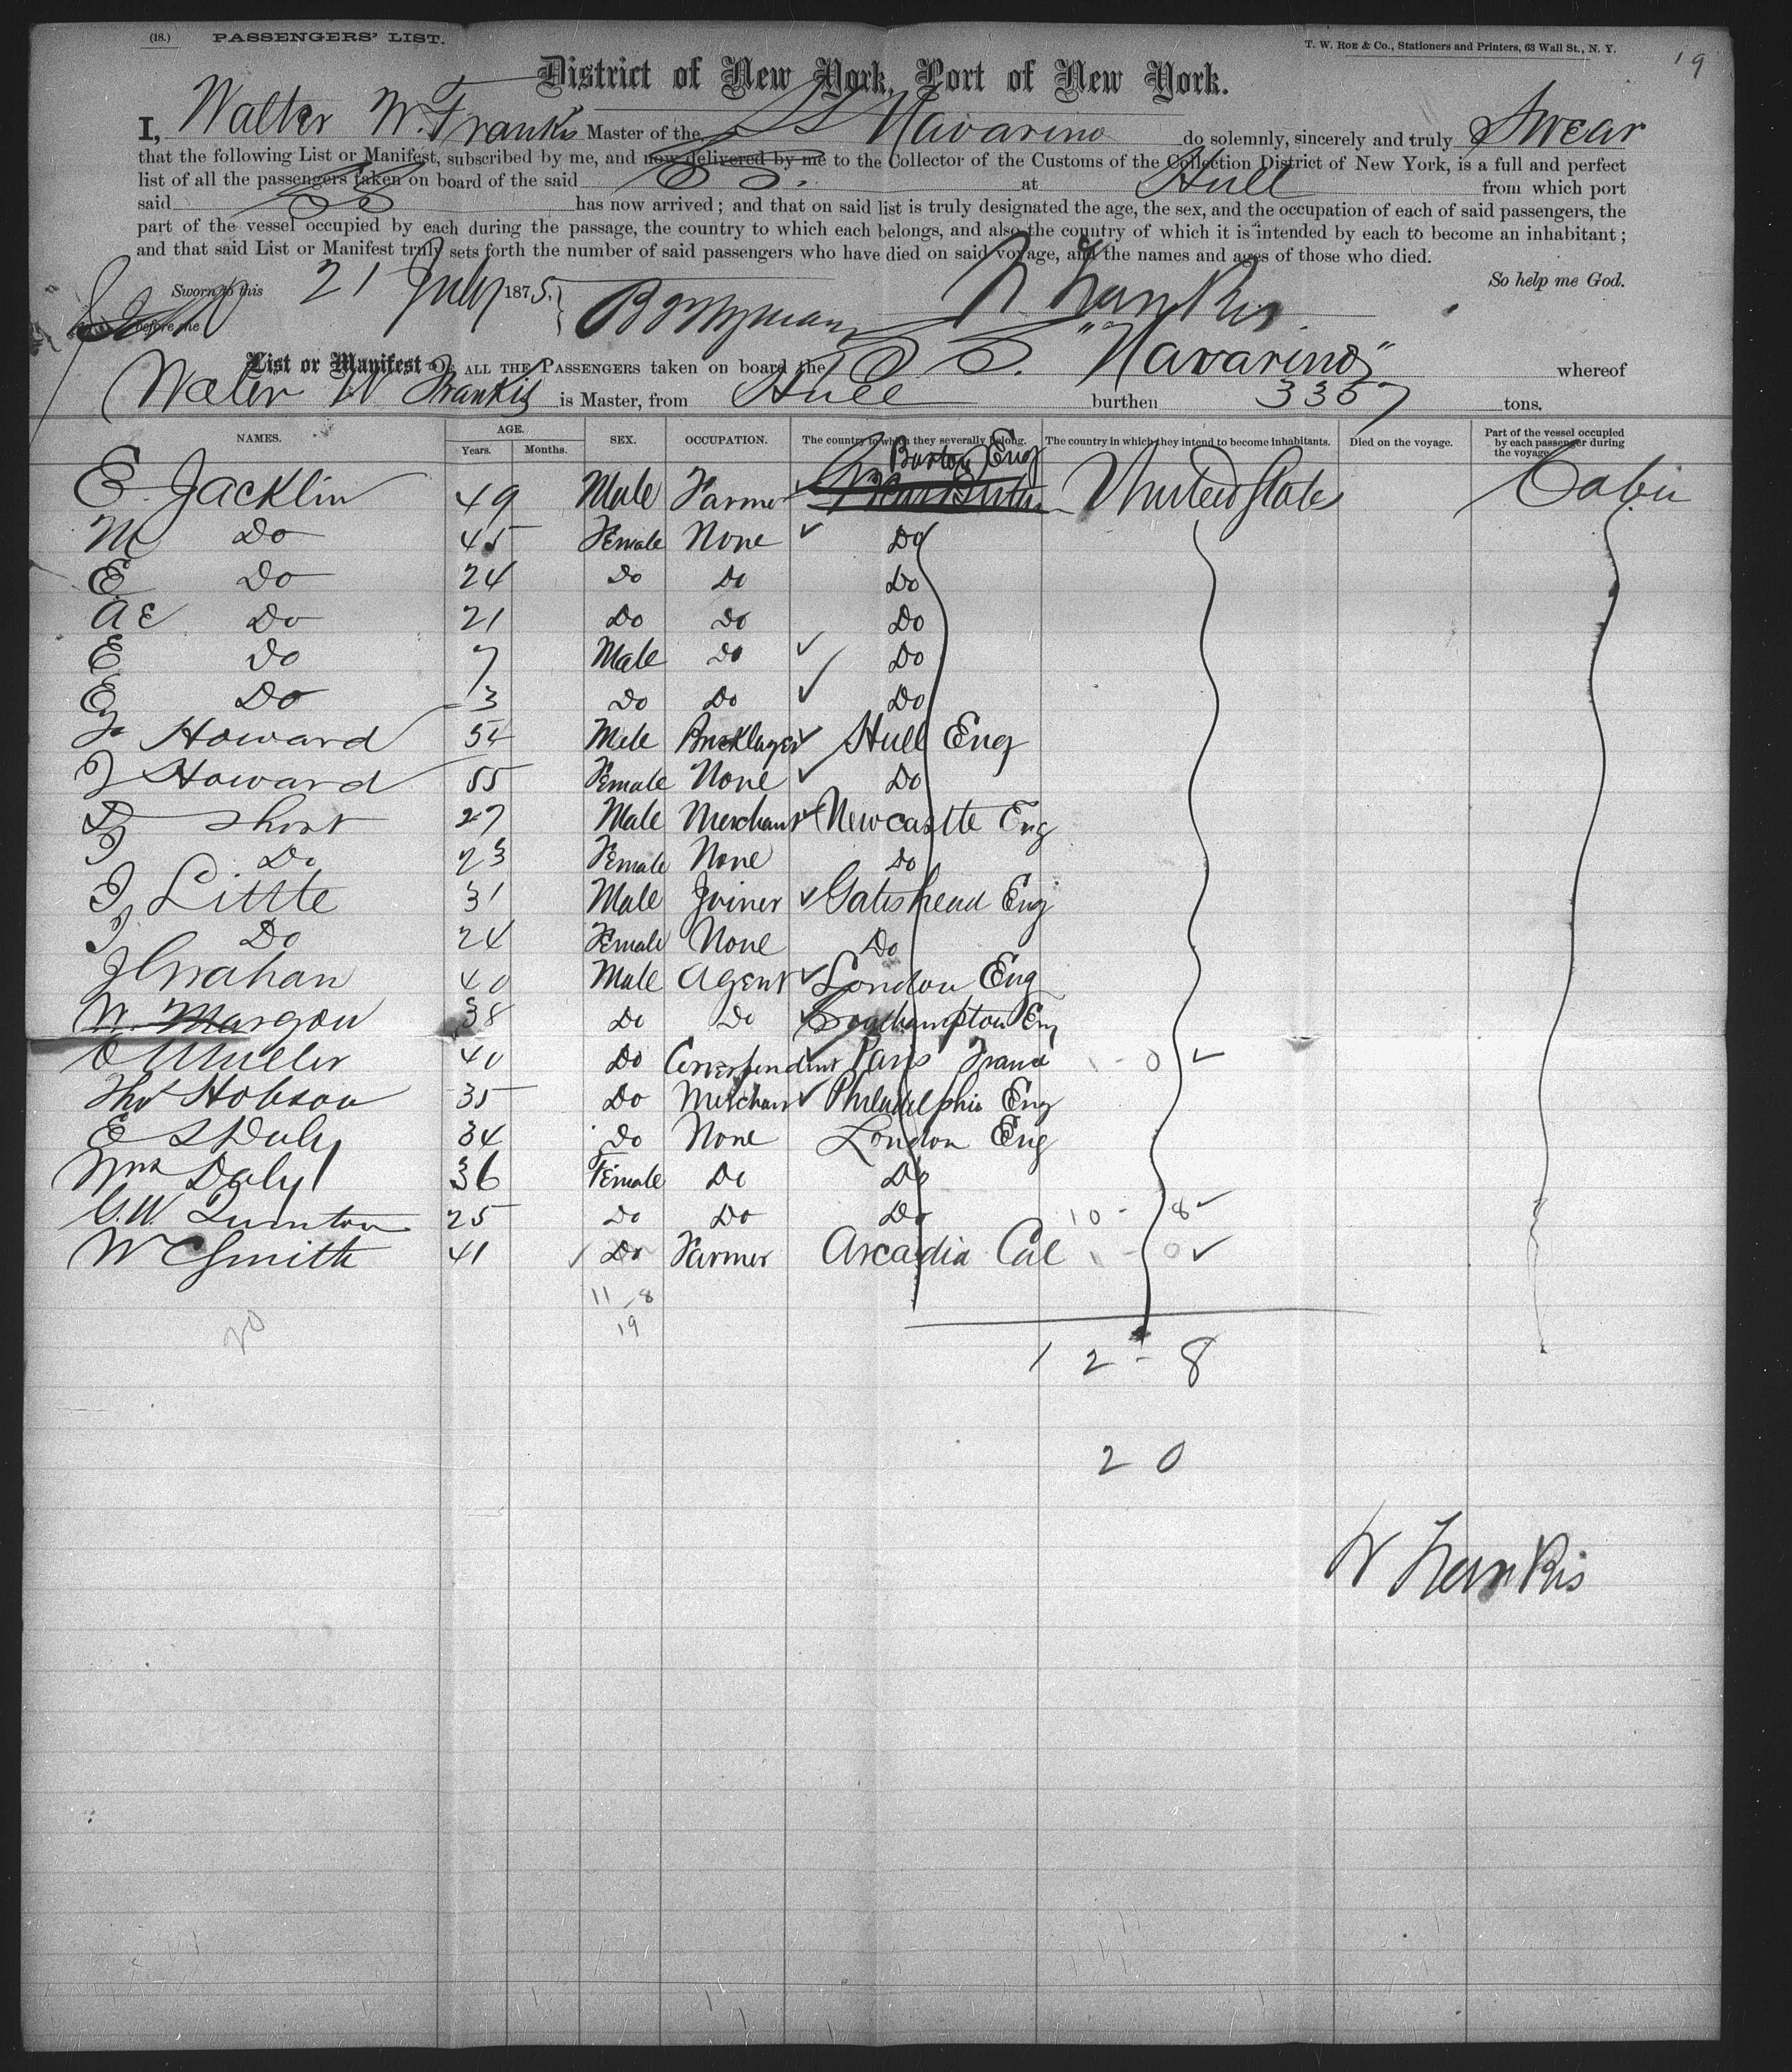 (18.) PASSENGERS' LIST. T. W. ROE & Co., Stationers and Printers, 63 Wall St., N. Y. 19
District of New York, Port of New York.
I, Walter W. Frankis Master of the SS Navarino do solemnly, sincerely and truly Swear
that the following List or Manifest, subscribed by me, and now delivered by me to the Collector of the Customs of the Collection District of New York, is a full and perfect
list of all the passengers taken on board of the said SS. at Hull from which port
said SS has now arrived; and that on said list is truly designated the age, the sex, and the occupation of each of said passengers, the
part of the vessel occupied by each during the passage, the country to which each belongs, and also the country of which it is intended by each to become an inhabitant;
and that said List or Manifest truly sets forth the number of said passengers who have died on said voyage, and the names and ages of those who died.
So help me God.
Sworn to this 21 July 1875. W Frankis
before me
List or Manifest OF ALL THE PASSENGERS taken on board the SS. "Navarino" whereof
Walter W Frankis is Master, from Hull burthen 3357 tons.
NAMES. AGE. Years. Months. SEX. OCCUPATION. The country to which they severally belong. The country in which they intend to become inhabitants. Died on the voyage. Part of the vessel occupied by each passenger during the voyage.
E. Jacklin 49 Male Farmer Burton Eng United States Cabin
M Do 45 Female None Do
E Do 24 Do Do Do
A E Do 21 Do Do Do
E Do 7 Male Do Do
E Do 3 Do Do Do
J Howard 54 Male Bricklayer Hull Eng
J Howard 55 Female None Do
Short 27 Male Merchant Newcastle Eng
Do 23 Female None Do
J Little 31 Male Joiner Gateshead Eng
J Do 24 Female None Do
J Grahan 40 Male Agent London Eng
W. Margou 38 Do Do Southampton Eng
E Mueller 40 Do Correspondent Paris France 1 - 0
Thos Hobson 35 Do Merchant Philadelphia Eng
E S Duly 34 Do None London Eng
Mrs Daly 36 Female Do Do
G.W. Quinton 25 Do Do Do 10 - 8
W C Smith 41 Do Farmer Arcadia Cal 1 - 0
11 - 8
19
20
12 - 8
20
W Frankis